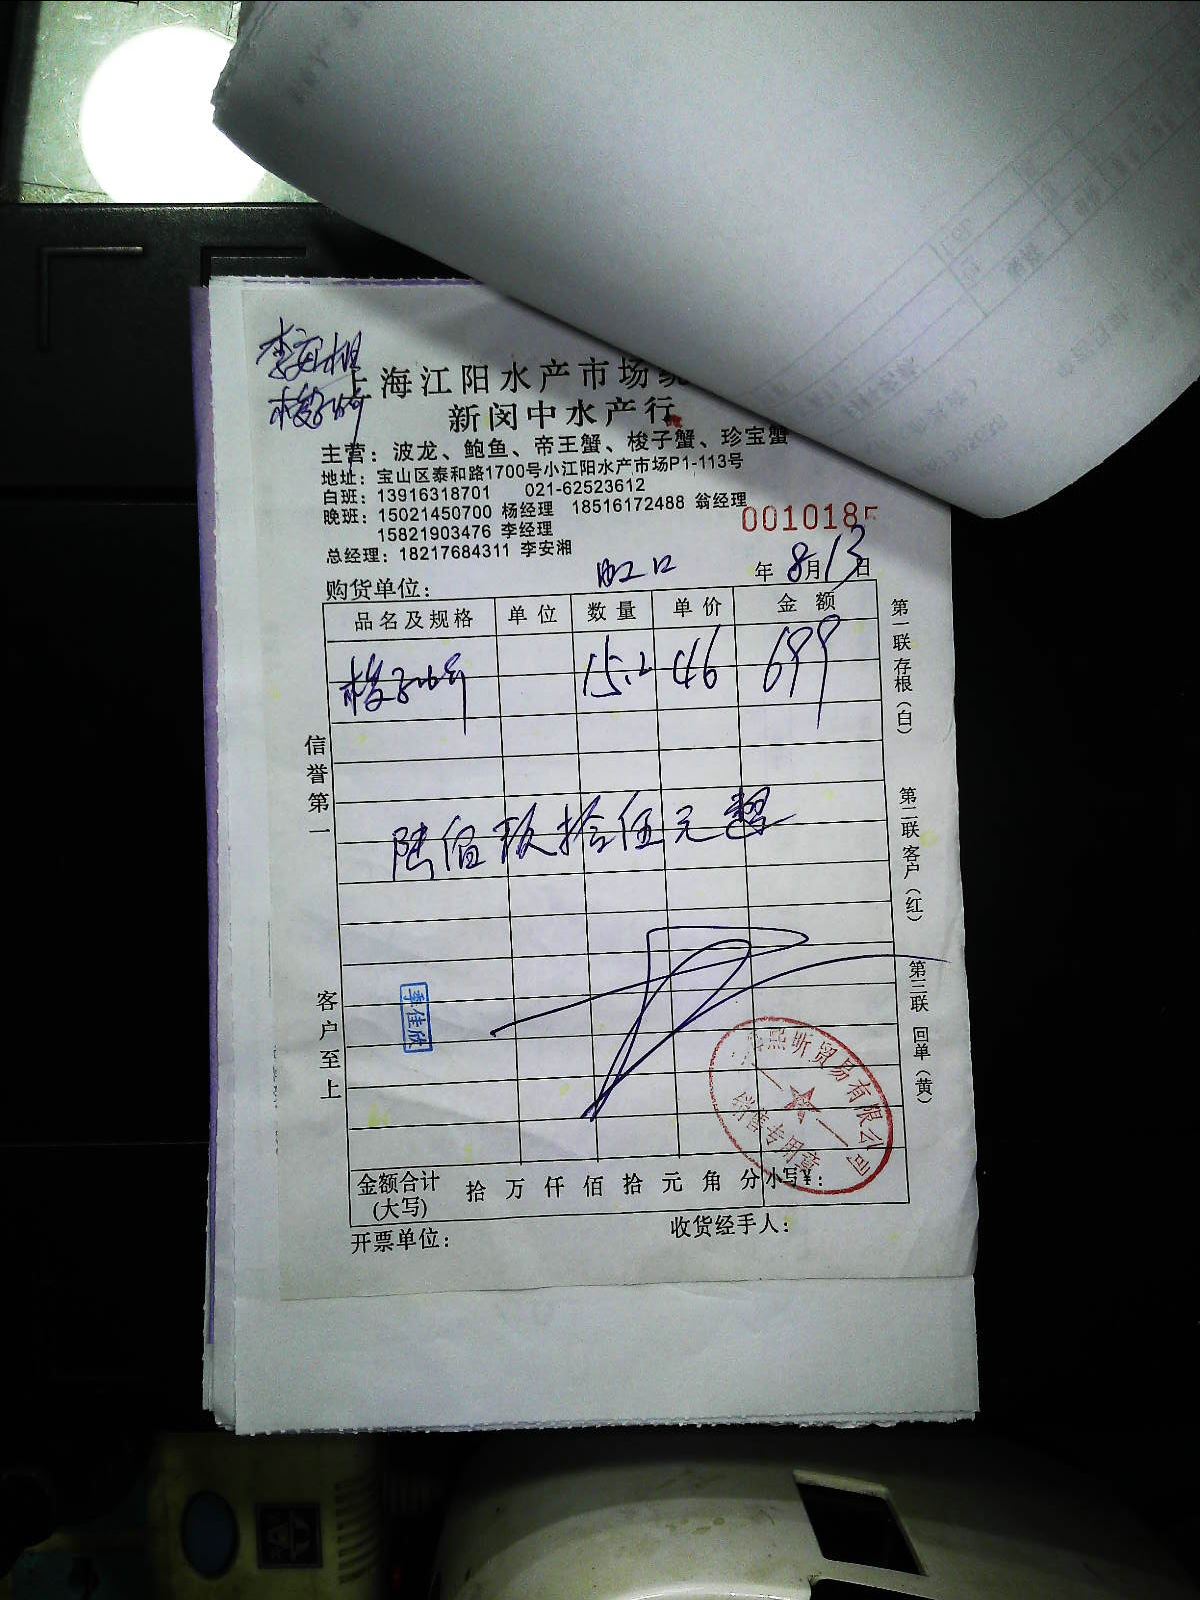 李安湘
梭子蟹
上海江阳水产市场
新闵中水产行
主营：波龙、鲍鱼、帝王蟹、梭子蟹、珍宝蟹
地址：宝山区泰和路1700号小江阳水产市场P1-113号
白班：13916318701 021-62523612
晚班：15021450700 杨经理 18516172488 翁经理
15821903476 李经理
总经理：18217684311 李安湘
001018
购货单位： 虹口 年 8月13日
品名及规格 单位 数量 单价 金额
梭子蟹 15.2 46 699
陆佰玖拾伍元整
李佳欣
熙昕贸易有限公司
销售专用章
金额合计 拾 万 仟 佰 拾 元 角 分 小写¥：
(大写)
开票单位： 收货经手人：
信誉第一
客户至上
第一联 存根（白）
第二联 客户（红）
第三联 回单（黄）